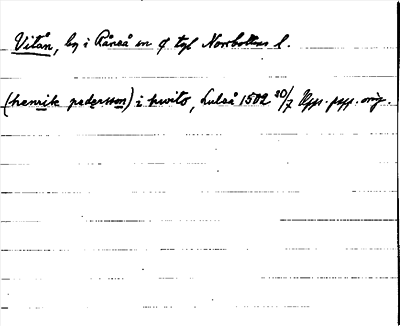 Vitån, by i Råneå sn ö tgl Norrbottens l.
(henrik pedersson) i hwito, Luleå 1502 20/7 Upps. papp. orig.